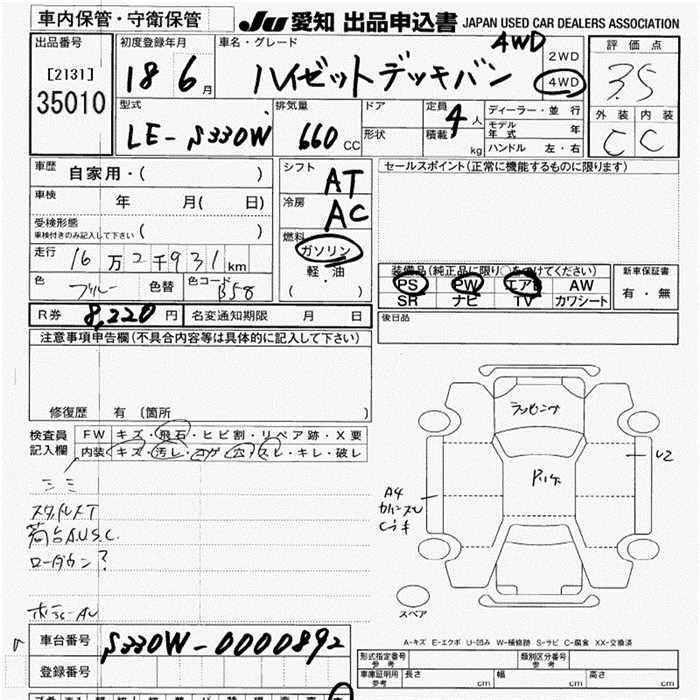 車内保管・守衛保管
JU 愛知 出品申込書 JAPAN USED CAR DEALERS ASSOCIATION
出品番号
[2131]
35010
初度登録年月
18 6 月
車名・グレード
4WD
ハイゼットデッキバン
2WD
4WD
評価点
3.5
外装 内装
C C
型式
LE-S330W
排気量
660 CC
ドア
形状
定員
4 人
積載
kg
ディーラー・並行
モデル年式 年
ハンドル 左・右
車歴
自家用・( )
車検
年 月( 日)
受検形態
車検付きのみ記入して下さい ( )
走行
16 万 2 千 931 km
色
ブルー
色替
色コード
B58
シフト
AT
冷房
AC
燃料
ガソリン
軽・油
( )
セールスポイント(正常に機能するものに限ります)
装備品(純正品に限り○をつけてください)
PS PW エアB AW
SR ナビ TV カワシート
新車保証書
有・無
後日品
R券 8,220 円
名変通知期限 月 日
注意事項申告欄(不具合内容等は具体的に記入して下さい)
修復歴 有 [箇所 ]
検査員
記入欄
FW キズ・飛石・ヒビ割・リペア跡・X要
内装 キズ・汚レ・コゲ・穴・スレ・キレ・破レ
荷台AUSC.
ローダウン?
ラッピング
U2
A4
スペア
A-キズ E-エクボ U-凹み W-補修跡 S-サビ C-腐食 XX-交換済
車台番号
S330W-0000892
登録番号
型式指定番号
参考
類別区分番号
参考
車庫証明用
参考
長さ cm 幅 cm 高さ cm